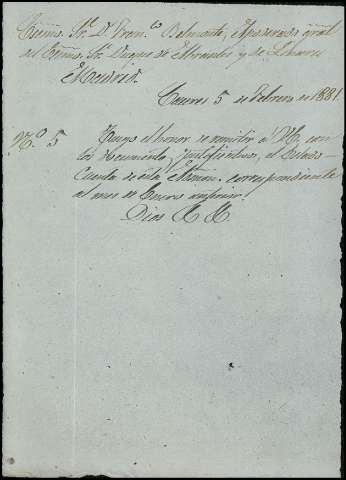 Excmo. Sr. D. Fran.co Belmonte, Apoderado gral
del Excmo. Sr. Duque de Abrantes y de Linares
Madrid.
Caceres 5 de Febrero de 1881
N.º 5 Tengo el honor de remitir á V.E. con
los documentos justificativos, el Estado-
Cuenta de esta Admón. correspondiente
al mes de Enero
Dios &. &.